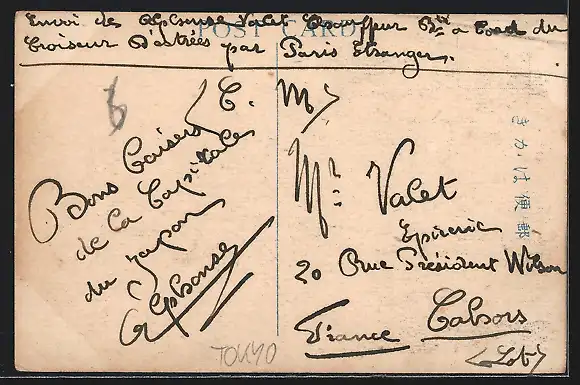 Envoi de Alphonse Valet Chauffeur Bté a bord du
POST CARD
Croiseur D'Estrées par Paris Etranger.
6
T. M
Bons Baisers
de la Capitale
du Japon
Alphonse
TOKYO
Mr Valet
Epicerie
20 Rue Président Wilson
France Cahors
(Lot)
きかは便郵